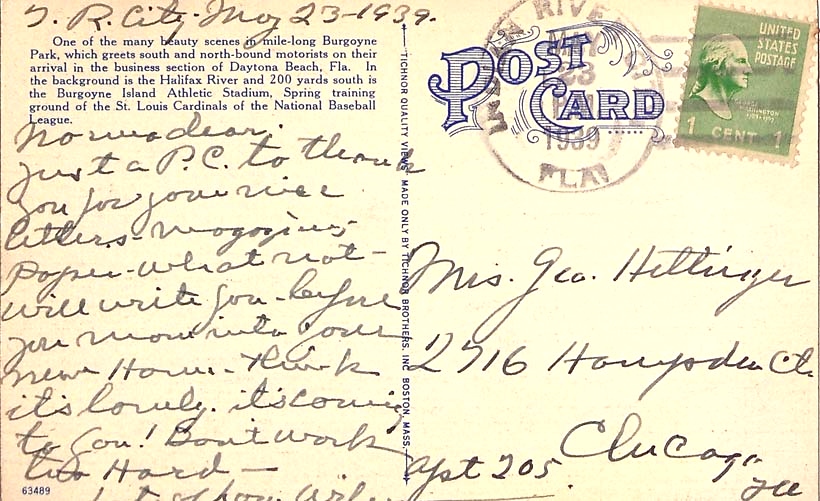 I. R. City. May 23-1939.
One of the many beauty scenes in mile-long Burgoyne
Park, which greets south and north-bound motorists on their
arrival in the business section of Daytona Beach, Fla. In
the background is the Halifax River and 200 yards south is
the Burgoyne Island Athletic Stadium, Spring training
ground of the St. Louis Cardinals of the National Baseball
League.
Norma dear.
Just a P.C. to thank
you for your nice
letters- magazines
paper-what not-
will write you-before
you move into your
new Home. Think
it's lovely. its coming
to you! Don't work
too Hard—
63489
TICHNOR QUALITY VIEWS
MADE ONLY BY TICHNOR BROTHERS, INC. BOSTON, MASS.
POST
CARD
INDIAN RIVER
MAY
23
PM
1939
FLA
UNITED
STATES
POSTAGE
GEORGE
WASHINGTON
1789-1797
1 CENT 1
Mrs. Geo. Hettinger
2716 Hampden Ct.
Apt 205. Chicago
Ill